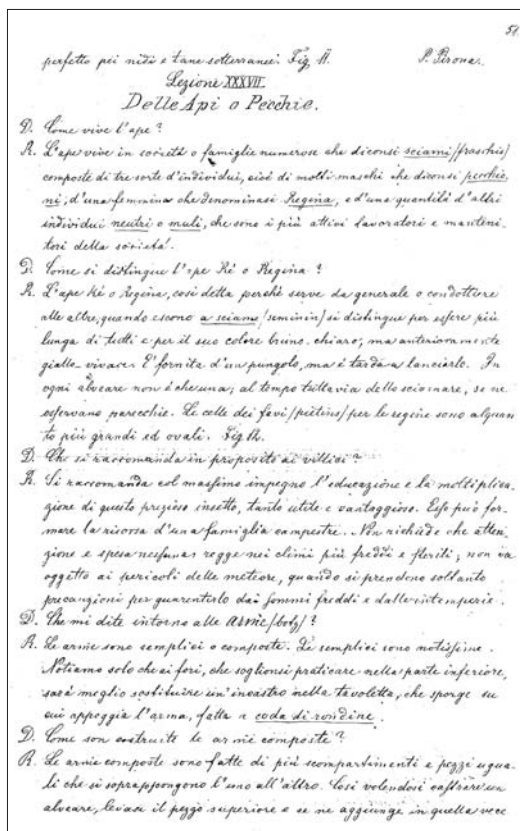 51
perfetto pei nidi e tane sotterranei. Fig. 11. P. Pirona.
Lezione XXXVII.
Delle Api o Pecchie.
D. Come vive l'ape?
R. L'ape vive in società o famiglie numerose che diconsi sciami /fraschis/
composte di tre sorte d'individui, cioè di molti maschi che diconsi pecchio,
ni, d'una femmina che denominasi Regina, e d'una quantità d'altri
individui neutri o muli, che sono i più attivi lavoratori e manteni-
tori della società.
D. Come si distingue l'ape Rè o Regina?
R. L'ape Rè o Regina, così detta perchè serve da generale o condottiere
alle altre, quando escono a sciame /seminin/ si distingue per essere più
lunga di tutti e per il suo colore bruno-chiaro; ma anteriormente
giallo-vivace. E' fornita d'un pungolo, ma è tarda a lanciarlo. In
ogni alveare non è che una; al tempo tuttavia dello sciamare, se ne
osservano parecchie. Le celle dei favi /piétins/ per le regine sono alquan
to più grandi ed ovali. Fig 12.
D. Che si raccomanda in proposito ai villici?
R. Si raccomanda col massimo impegno l'educazione e la moltiplica-
zione di questo prezioso insetto, tanto utile e vantaggioso. Esso può for-
mare la risorsa d'una famiglia campestre. Non richiede che atten-
zione e spesa nessuna: regge nei climi più freddi e sterili; non va
oggetto ai pericoli delle meteore, quando si prendono soltanto
precauzioni per guarentirlo dai sommi freddi e dalle intemperie.
D. Che mi dite intorno alle arnie /botz/?
R. Le arnie sono semplici o composte. Le semplici sono notissime.
Notiamo solo che ai fori, che soglionsi praticare nella parte inferiore,
sarà meglio sostituire un incastro nella tavoletta, che sporge su
cui appoggia l'arnia, fatta a coda di rondine.
D. Come son costruite le arnie composte?
R. Le arnie composte sono fatte di più scompartimenti e pezzi ugua-
li che si soprappongono l'uno all'altro. Così volendosi castrare un
alveare, levasi il pezzo superiore e se ne aggiunge in quella vece